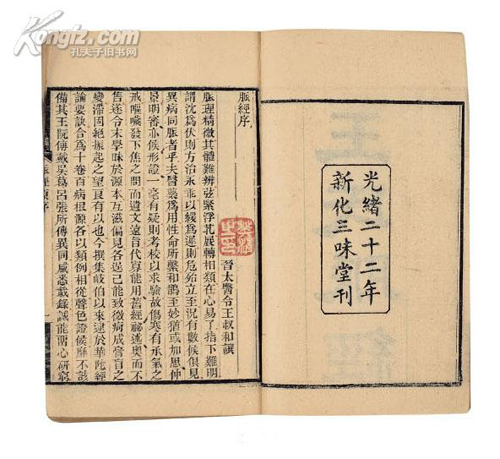 Kongfz.com
孔夫子旧书网
光緒二十二年
新化三味堂刊
脈經序
晉太醫令王叔和譔
脈理精微其體難辨弦緊浮芤展轉相類在心易了指下難明
謂沈爲伏則方治永乖以緩爲遲則危殆立至況有數候俱見
異病同脈者乎夫醫藥爲用性命所繫和鵲至妙猶或加思仲
景明審亦候形證一毫有疑則考校以求驗故傷寒有承氣之
戒嘔噦發下焦之問而遺文遠旨代寡能用舊經秘述奧而不
售遂令末學昧於源本互滋偏見各逞己能致微病成膏肓之
變滯固絕振起之望良有以也今撰集岐伯以來逮於華陀經
論要訣合爲十卷百病根源各以類例相從聲色證候靡不該
備其王阮傅戴吳葛呂張所傳異同咸悉載錄誠能留心研窮